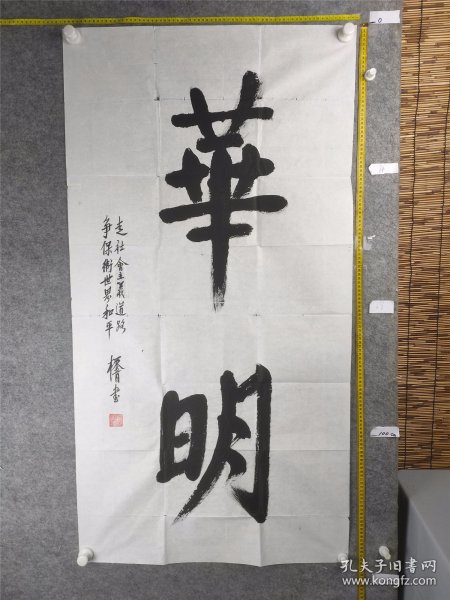 華明
走社會主義道路
争保衛世界和平
書
0
100cm
孔夫子旧书网
www.kongfz.com